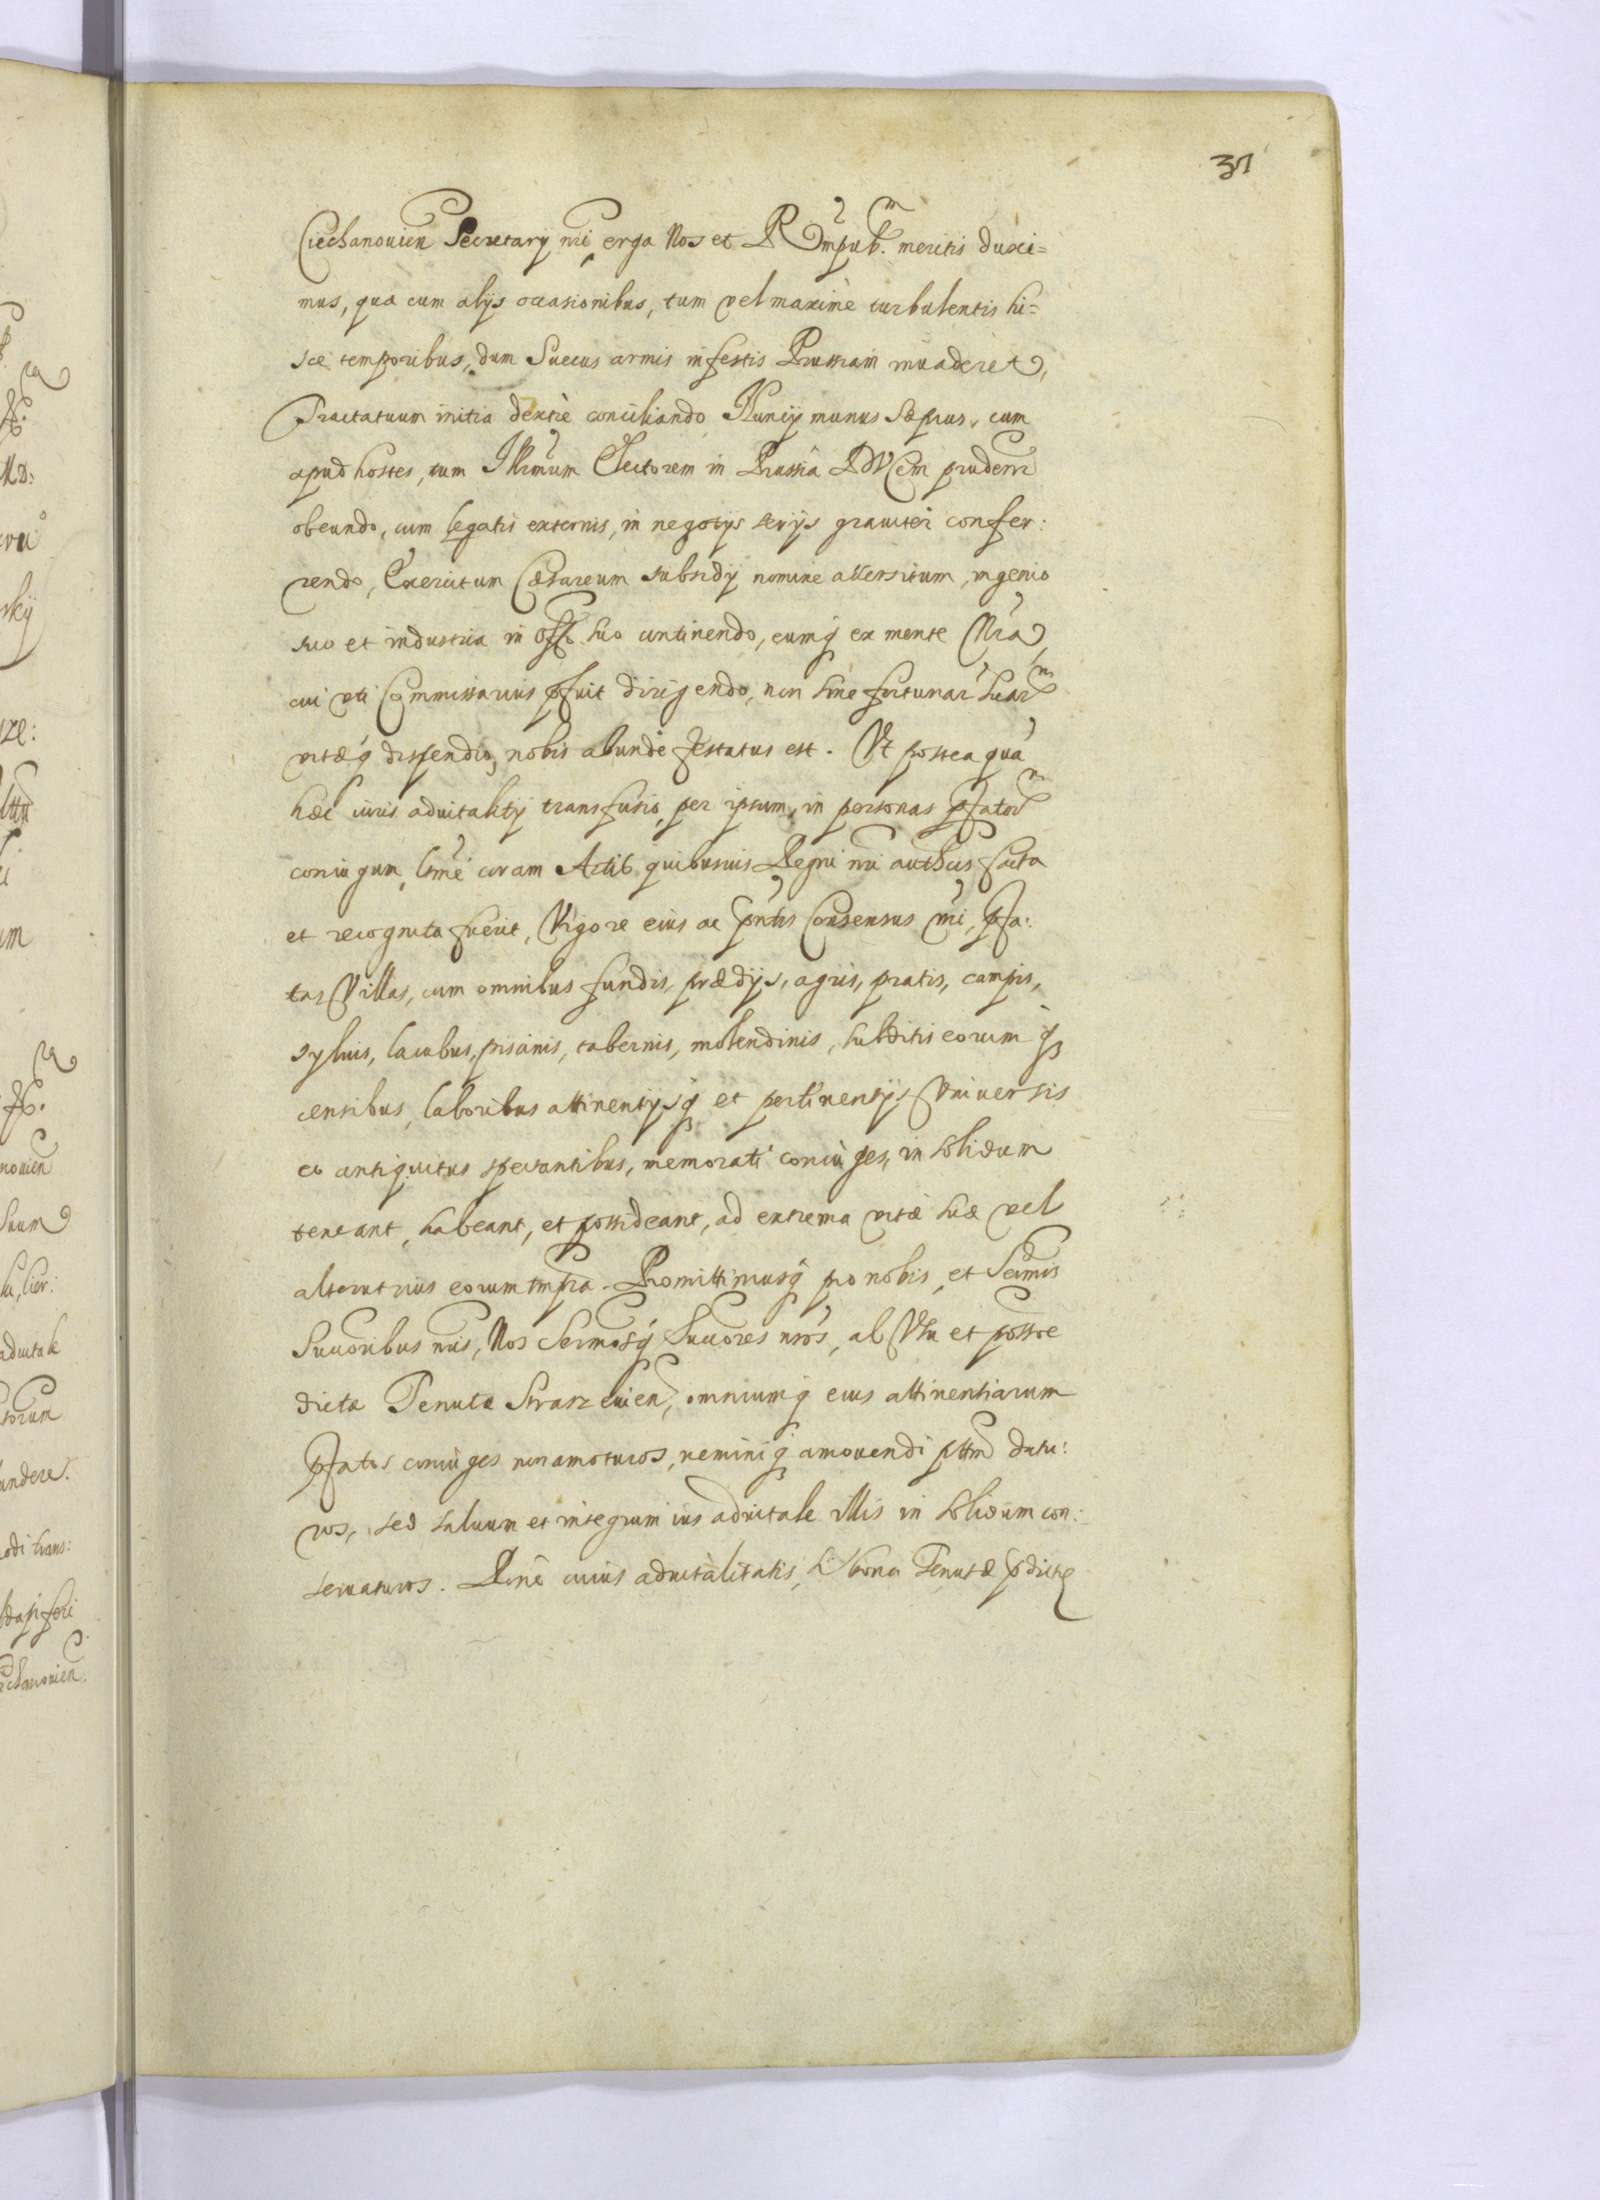 37
Ciechanouien Secretarij nri erga Nos et Rempub. meritis duxi=
mus, qua cum alijs occasionibus, tum vel maxime turbulentis hi=
sce temporibus, dum Suecus armis infestis Prussiam inuaderet,
Tractatuum initia dextre conciliando, Nuncij munus saepius, cum
apud hostes, tum Illrmum Electorem in Prussia DVCem prudenr
obeundo, cum legatis externis, in negotijs serijs grauiter confer:
rendo, Exercitum Caesareum subsidij nomine accersitum, ingenio
suo et industria in offo suo continendo, eumq ex mente Nra,
cui uti Commissarius pfuit dirigendo, non sine fortunar suar
vitaeq dispendio, nobis abunde testatus est. Vt postea qua
haec iuris aduitalitij transfusio, per ipsum, in personas pfator
coniugum, ltime coram Actib quibusuis Regni nri authcis facta
et recognita fuerit, Vigore eius ac pntis Consensus nri, pfa:
tas Villas, cum omnibus fundis, praedijs, agris, pratis, campis,
syluis, lacubus, piscinis, tabernis, molendinis, subditis eorumq
censibus, laboribus attinentijsq et pertinentijs Vniuersis
eo antiquitus spectantibus, memorati coniuges, in solidum
teneant, habeant, et possideant, ad extrema vitae suae vel
alterutrius eorum tmpra. Promittimusq pro nobis, et Sermis
Succoribus nris, Nos Sermosq Succores nros, ab Vsu et possoe
dictae Tenutae Straszeuien, omniumq eius attinentiarum
pfatos coniuges non amoturos, neminiq amouendi pttm datu:
ros, sed saluum et integrum ius aduitale illis in solidum con:
seruaturos. Rone cuius aduitalitatis, bona Tenutae pdictae